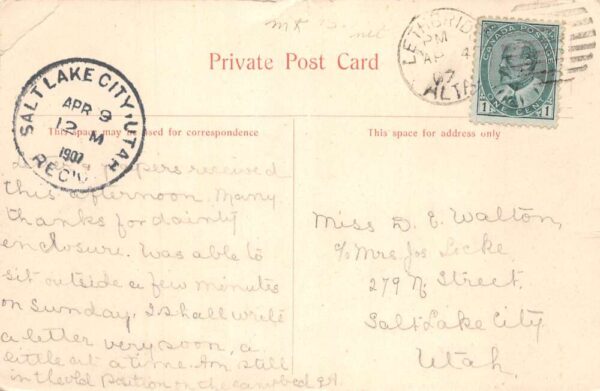 Private Post Card
LETHBRIDG
PM
AP 4
07
ALTA
CANADA POSTAGE
1 1
ONE CENT
SALT LAKE CITY, UTAH
APR 9
12 M
1907
REC'D
This space may be used for correspondence
This space for address only
papers received
this afternoon. Many
thanks for dainty
enclosure. Was able to
sit outside a few minutes
on Sunday. I shall write
a letter very soon, a
little at a time. Am still
in the old position on the
Miss D. E. Walton,
c/o Mrs Jos. Locke,
279 N. Street,
Salt Lake City
Utah.